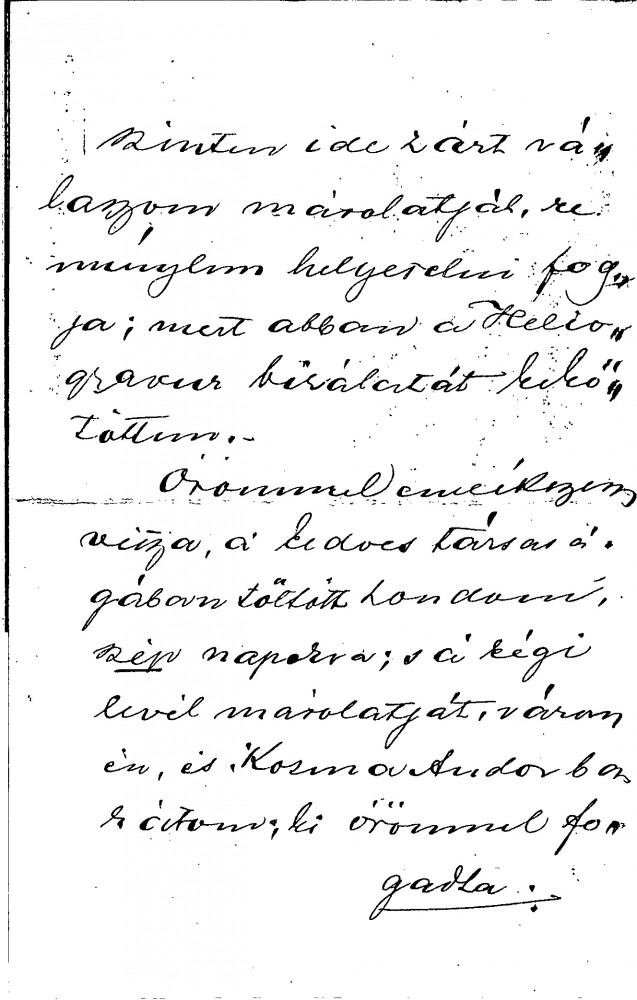 szinten ide zárt vá„
laszom másolatját, re
ménylem helyeselni fog„
ja; mert abban a Helio„
gravur birálatát kikö„
töttem.–
Örömmel emlékszem
vissza, a kedves társasá-
gában töltött Londoni,
szép napokra; s a régi
levél másolatját, várom
én, és Kozma Andor ba„
rátom; ki örömmel fo„
gadta.: